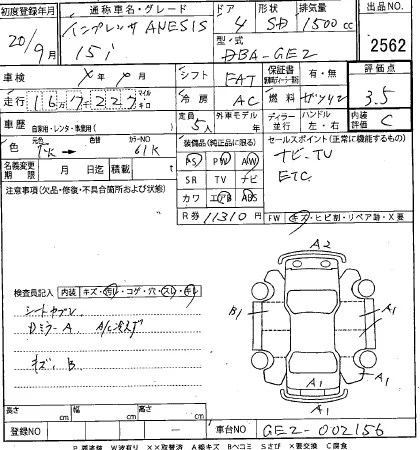 初度登録年月 通称車名・グレード ドア 形状 排気量 出品NO
20/9月 インプレッサ ANESIS 15i 4 SD 1500cc 2562
型・式
DBA-GE2
車検 シフト FAT 保証書 有・無 評価点
走行 16万7千227 マイル キロ 冷房 AC 燃料 ガソリン 3.5
車歴 自家用・レンタ・事業用 定員 5人 外車モデル 年 ディーラー 並行 ハンドル 左・右 内装評価 C
色 元色 色替 カラーNO 61K
装備品(純正品に限る) セールスポイント(正常に機能するもの)
PS PW AW ナビ・TV
名義変更期限 月 日迄 積載 t SR TV ナビ ETC
注意事項(欠品・修復・不具合箇所および状態) カワ エアB ABS
R券 11310円 FW キズ・ヒビ割・リペア跡・X要
A2
検査員記入 内装 キズ・汚レ・コゲ・穴・スレ・キレ
B1 A1
シートカブレ
Dミラー A A/C冷えず
キズ、B
A1
A1
長さ cm 幅 cm 高さ cm
登録NO — 車台NO GE2-002156
P 要塗装 W波有り XX取替済 A線キズ Bヘコミ Sさび X要交換 C腐食